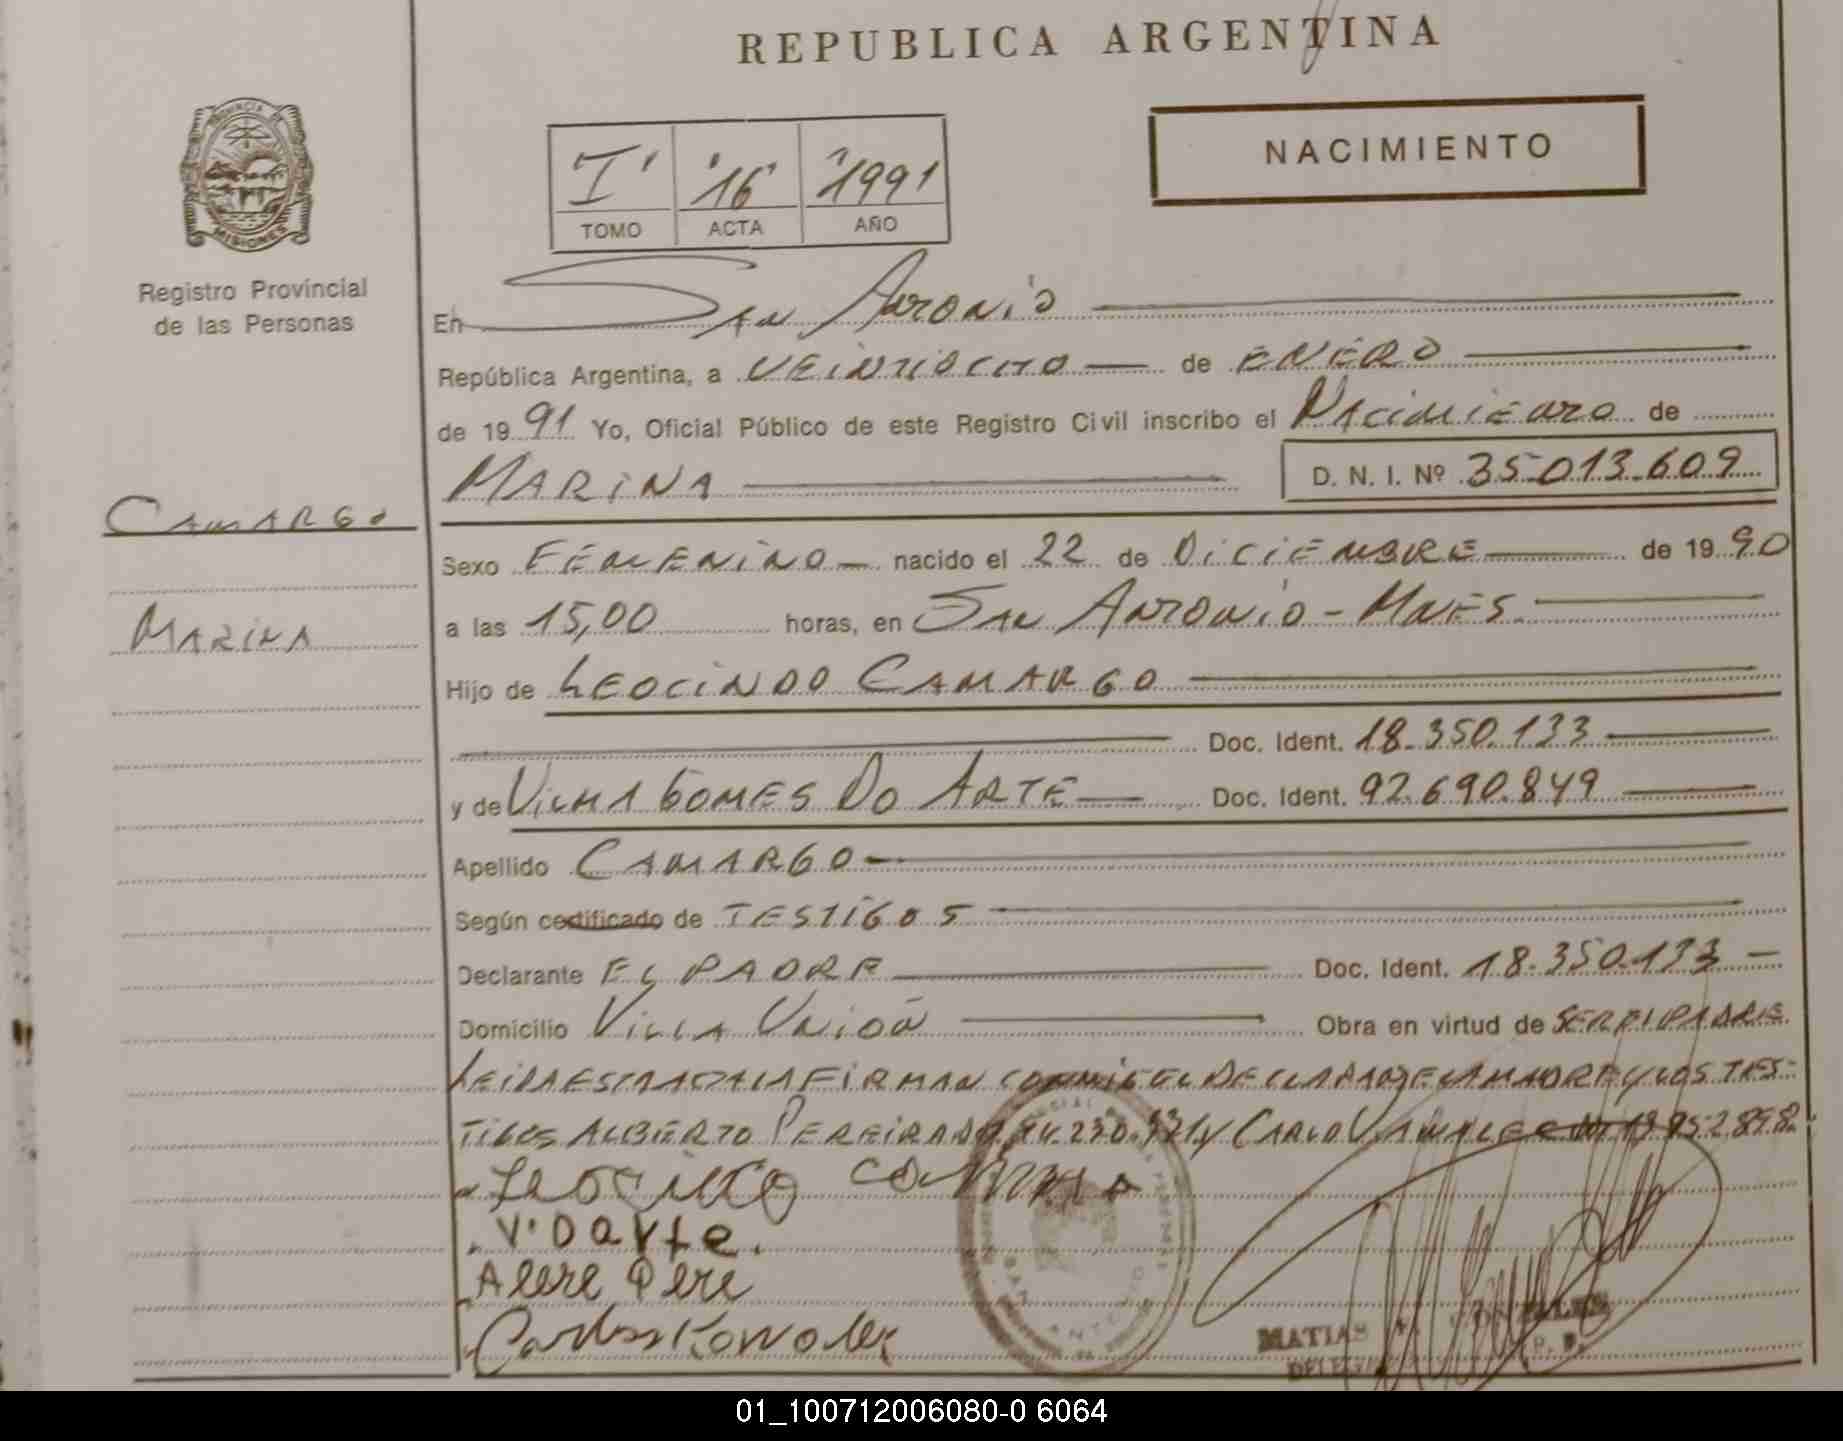 REPUBLICA ARGENTINA
PROVINCIA DE
MISIONES
Registro Provincial
de las Personas
I 16 1991
TOMO ACTA AÑO
NACIMIENTO
En SAN ANTONIO
República Argentina, a VEINTIOCHO de ENERO
de 1991 Yo, Oficial Público de este Registro Civil inscribo el NACIMIENTO de
MARINA D. N. I. Nº 35.013.609
CAMARGO
MARINA
Sexo FEMENINO nacido el 22 de DICIEMBRE de 1990
a las 15,00 horas, en SAN ANTONIO - MNES.
Hijo de LEOCINDO CAMARGO
Doc. Ident. 18.350.133
y de VILMA GOMES DO ARTE Doc. Ident. 92.690.849
Apellido CAMARGO
Según certificado de TESTIGOS
Declarante EL PADRE Doc. Ident. 18.350.133
Domicilio VILLA UNIÓN Obra en virtud de SER EL PADRE.
LEIDA ESTA ACTA LA FIRMAN CONMIGO EL DECLARANTE LA MADRE Y LOS TES-
TIGOS ALBERTO PEREIRA Y CARLO
V. Darte.
Carlos
MATIAS